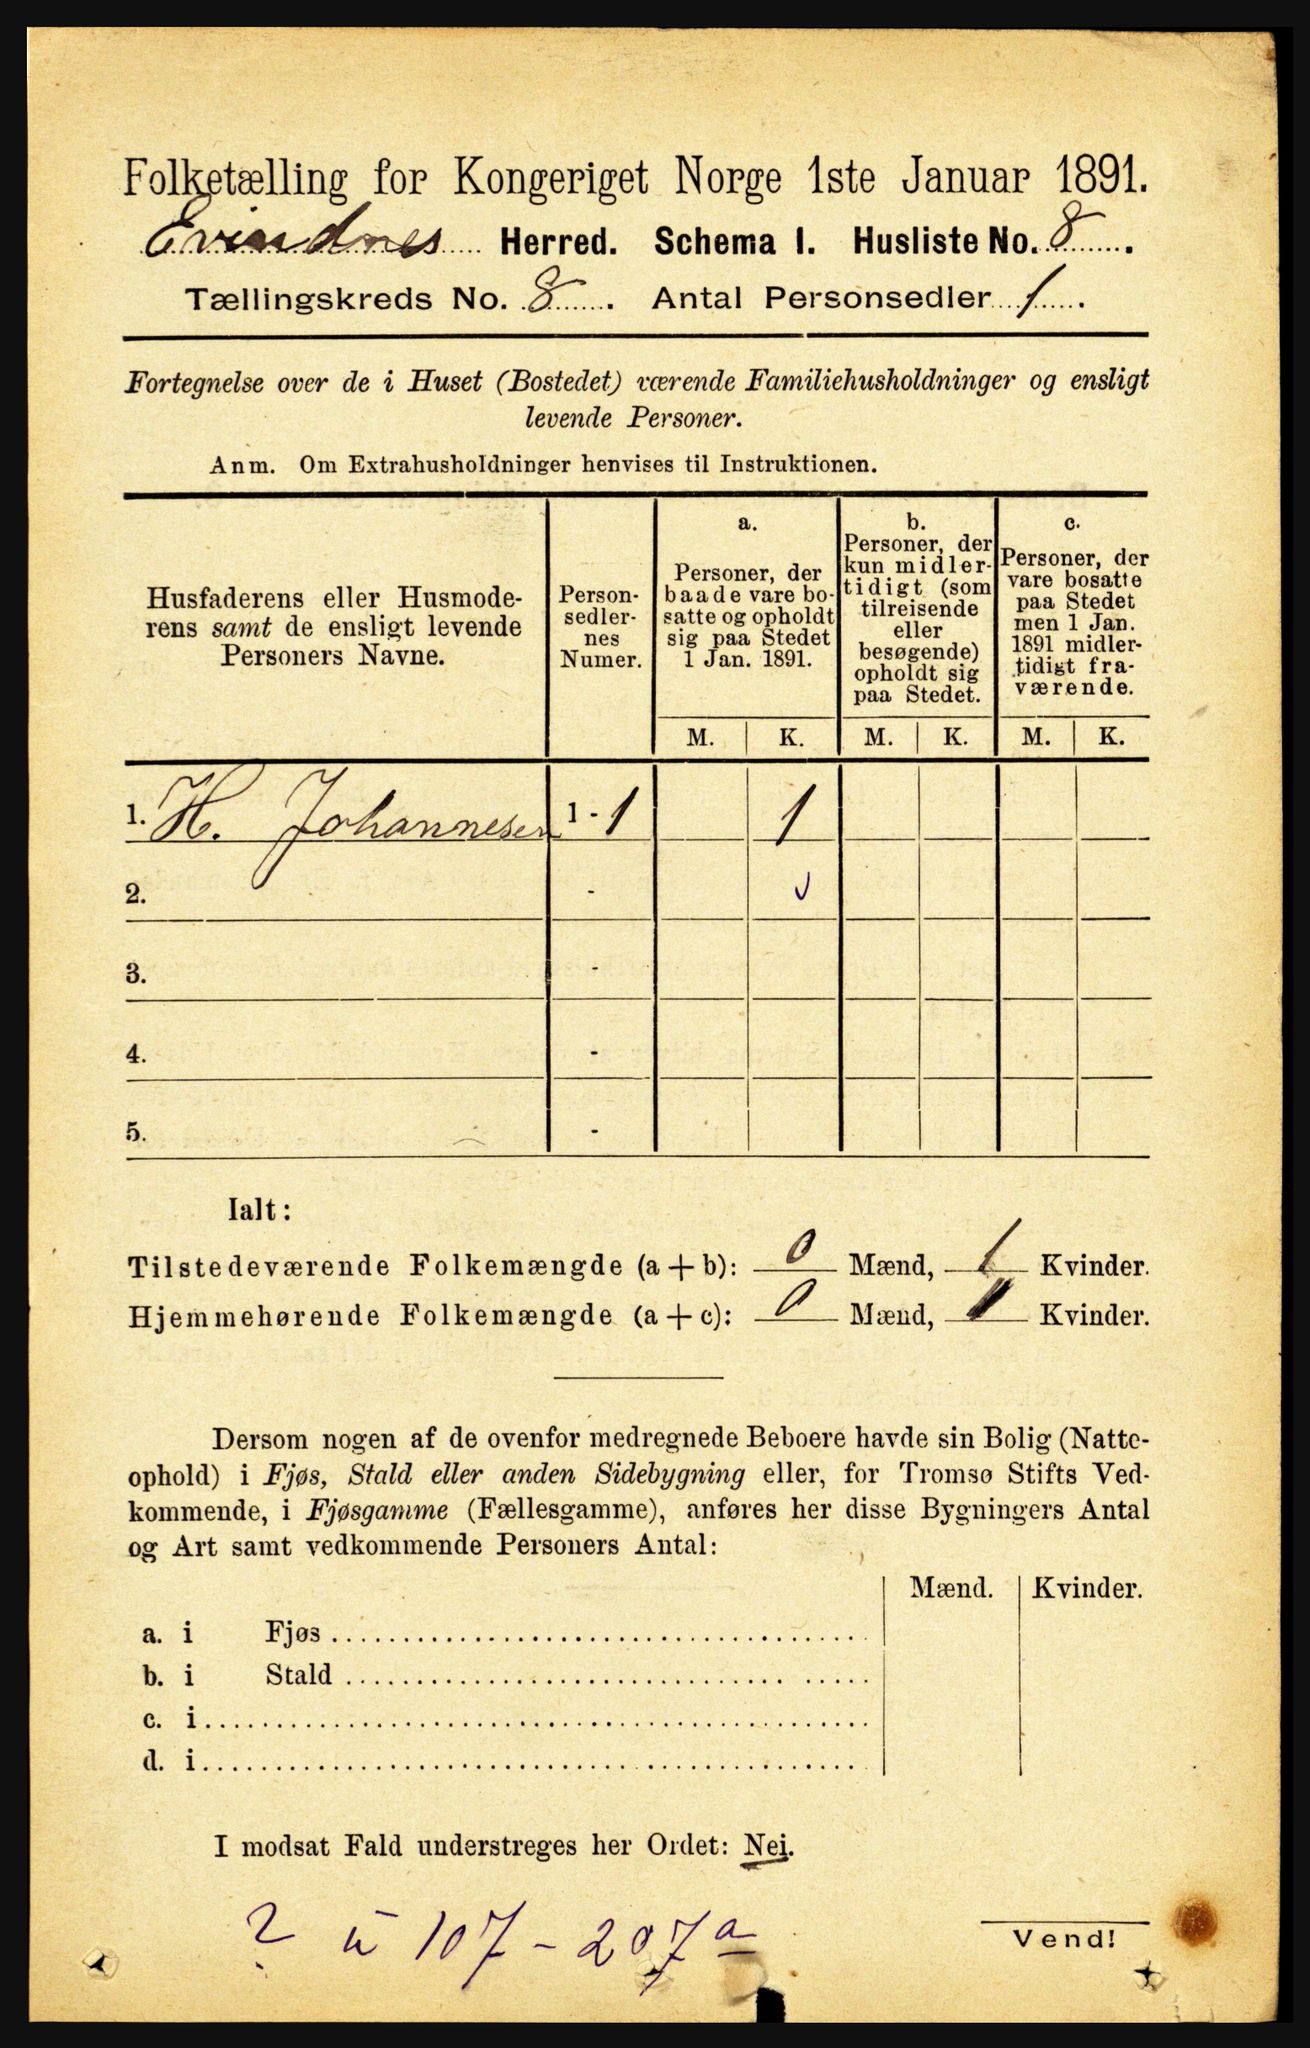 Folketælling for Kongeriget Norge 1ste Januar 1891.
Evindnes Herred. Schema I. Husliste No. 8.
Tællingskreds No. 8. Antal Personsedler 1.
Fortegnelse over de i Huset (Bostedet) værende Familiehusholdninger og ensligt
levende Personer.
Anm. Om Extrahusholdninger henvises til Instruktionen.
Husfaderens eller Husmode-
rens samt de ensligt levende
Personers Navne.
Person-
sedler-
nes
Numer.
a.
Personer, der
baade vare bo-
satte og opholdt
sig paa Stedet
1 Jan. 1891.
b.
Personer, der
kun midler-
tidigt (som
tilreisende
eller
besøgende)
opholdt sig
paa Stedet.
c.
Personer, der
vare bosatte
paa Stedet
men 1 Jan.
1891 midler-
tidigt fra-
værende.
M. K. M. K. M. K.
1. H. Johannesen 1 - 1 1
2. -
3. -
4. -
5. -
Ialt:
Tilstedeværende Folkemængde (a + b): 0 Mænd, 1 Kvinder.
Hjemmehørende Folkemængde (a + c): 0 Mænd, 1 Kvinder.
Dersom nogen af de ovenfor medregnede Beboere havde sin Bolig (Natte-
ophold) i Fjøs, Stald eller anden Sidebygning eller, for Tromsø Stifts Ved-
kommende, i Fjøsgamme (Fællesgamme), anføres her disse Bygningers Antal
og Art samt vedkommende Personers Antal:
Mænd. Kvinder.
a. i Fjøs
b. i Stald
c. i
d. i
I modsat Fald understreges her Ordet: Nei.
? u 107 - 207 a
Vend!